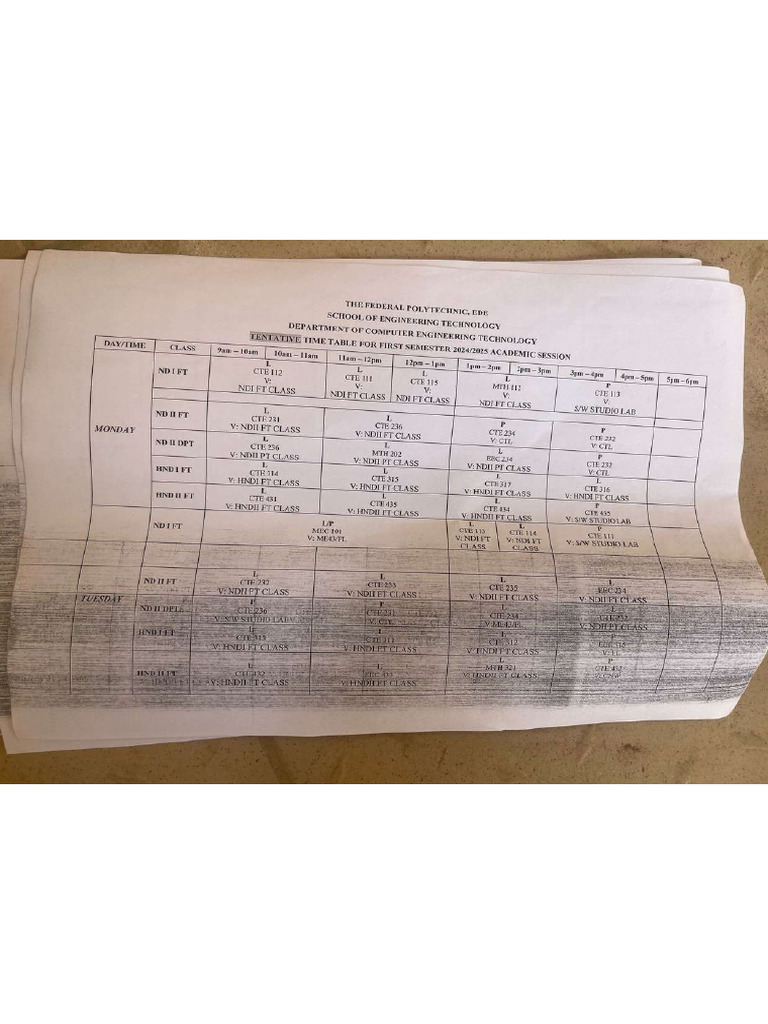 THE FEDERAL POLYTECHNIC, EDE
SCHOOL OF ENGINEERING TECHNOLOGY
DEPARTMENT OF COMPUTER ENGINEERING TECHNOLOGY
TENTATIVE TIME TABLE FOR FIRST SEMESTER 2024/2025 ACADEMIC SESSION
DAY/TIME CLASS 9am – 10am 10am – 11am 11am – 12pm 12pm – 1pm 1pm – 2pm 2pm – 3pm 3pm – 4pm 4pm – 5pm 5pm – 6pm
MONDAY
ND I FT
L L L L P
CTE 112 CTE 111 CTE 115 MTH 112 CTE 113
V: V: V: V: V:
NDI FT CLASS NDI FT CLASS NDI FT CLASS NDI FT CLASS S/W STUDIO LAB
ND II FT
L L P P
CTE 231 CTE 236 CTE 234 CTE 232
V: NDII FT CLASS V: NDII FT CLASS V: CTL V: CTL
ND II DPT
L L L P
CTE 236 MTH 202 EEC 234 CTE 232
V: NDII PT CLASS V: NDII PT CLASS V: NDII PT CLASS V: CTL
HND I FT
L L L L
CTE 314 CTE 315 CTE 317 CTE 316
V: HNDI FT CLASS V: HNDI FT CLASS V: HNDI FT CLASS V: HNDI FT CLASS
HND II FT
L L L P
CTE 431 CTE 435 CTE 434 CTE 435
V: HNDII FT CLASS V: HNDII FT CLASS V: HNDII FT CLASS V: S/W STUDIO LAB
TUESDAY
ND I FT
L/P L L P
MEC 101 CTE 113 CTE 114 CTE 111
V: ME43/FL V: NDI FT CLASS V: NDI FT CLASS V: S/W STUDIO LAB
ND II FT
L L L L
CTE 232 CTE 233 CTE 235 EEC 234
V: NDII FT CLASS V: NDII FT CLASS V: NDII FT CLASS V: NDII FT CLASS
P P L
CTE 236 CTE 231 CTE 234 CTE 232
V: S/W STUDIO LAB V: CTL V: NDII PT CLASS
HND I FT
L L L
CTE 313 CTE 311 CTE 312
V: HNDI FT CLASS V: HNDI FT CLASS V: HNDI FT CLASS
HND II FT
L L L P
CTE 432 MTH 321 CTE 432
V: HNDII FT CLASS V: HNDII FT CLASS V: HNDII FT CLASS